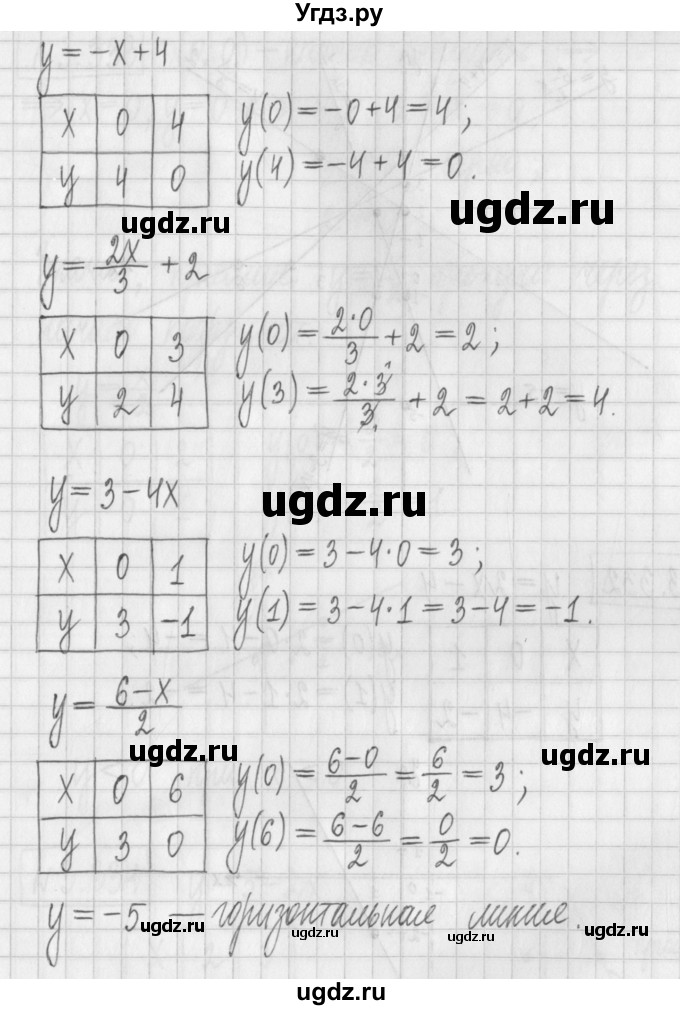 Угдз.ру
y=-x+4
x 0 4
y 4 0
y(0)=-0+4=4;
y(4)=-4+4=0.
ugdz.ru
ugdz.ru
y=2x/3+2
x 0 3
y 2 4
y(0)=2·0/3+2=2;
y(3)=2·3/3+2=2+2=4.
y=3-4x
ugdz.ru
x 0 1
y 3 -1
y(0)=3-4·0=3;
y(1)=3-4·1=3-4=-1.
y=6-x/2
ugdz.ru
ugdz.ru
x 0 6
y 3 0
y(0)=6-0/2=6/2=3;
y(6)=6-6/2=0/2=0.
y=-5 — горизонтальная линия.
ugdz.ru
ugdz.ru
ugdz.ru
ugdz.ru
ugdz.ru